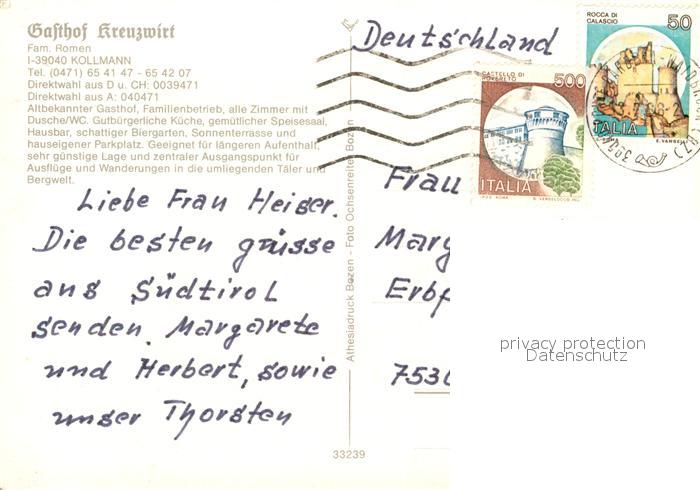 Gasthof Kreuzwirt
Fam. Romen
I-39040 KOLLMANN
Tel. (0471) 65 41 47 - 65 42 07
Direktwahl aus D u. CH: 0039471
Direktwahl aus A: 040471
Altbekannter Gasthof, Familienbetrieb, alle Zimmer mit
Dusche/WC. Gutbürgerliche Küche, gemütlicher Speisesaal,
Hausbar, schattiger Biergarten, Sonnenterrasse und
hauseigener Parkplatz. Geeignet für längeren Aufenthalt,
sehr günstige Lage und zentraler Ausgangspunkt für
Ausflüge und Wanderungen in die umliegenden Täler und
Bergwelt.
Liebe Frau Heiser.
Die besten grüsse
aus Südtirol
senden. Margarete
und Herbert, sowie
unser Thorsten
Athesiadruck Bozen - Foto Ochsenreiter Bozen
33239
Deutschland
CASTELLO DI
ROVERETO
500
ITALIA
ROCCA DI
CALASCIO
50
ITALIA
Frau
Marg
Erbp
7530
privacy protection
Datenschutz